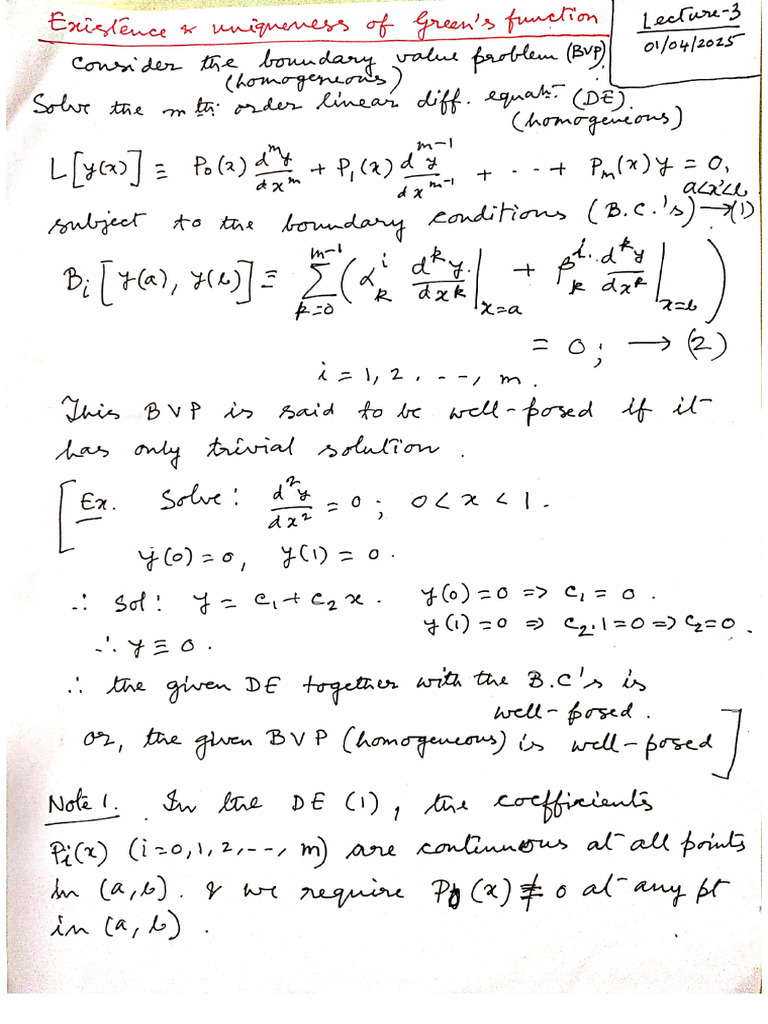 Existence & uniqueness of Green's function
Lecture-3
01/04/2025
Consider the boundary value problem (BVP)
(homogeneous)
Solve the mth order linear diff. equatn. (DE).
(homogeneous)
L[y(x)] ≡ P₀(x) dᵐy/dxᵐ + P₁(x) dᵐ⁻¹y/dxᵐ⁻¹ + ... + Pₘ(x)y = 0,
a<x<b
subject to the boundary conditions (B.C.'s) → (1)
Bᵢ[y(a), y(b)] ≡ Σ_{k=0}^{m-1} (αₖⁱ dᵏy/dxᵏ|ₓ₌ₐ + βₖⁱ dᵏy/dxᵏ|_{x=b})
= 0; → (2)
i = 1, 2, ---, m.
This BVP is said to be well-posed if it
has only trivial solution.
[Ex. Solve: d²y/dx² = 0; 0 < x < 1.
y(0) = 0, y(1) = 0.
∴ Sol: y = c₁ + c₂x. y(0) = 0 => c₁ = 0.
y(1) = 0 => c₂.1 = 0 => c₂ = 0.
∴ y ≡ 0.
∴ the given DE together with the B.C's is
well-posed.
or, the given BVP (homogeneous) is well-posed]
Note 1. In the DE (1), the coefficients
Pᵢ(x) (i=0,1,2,--, m) are continuous at all points
in (a, b). & we require P₀(x) ≠ 0 at any pt
in (a, b).